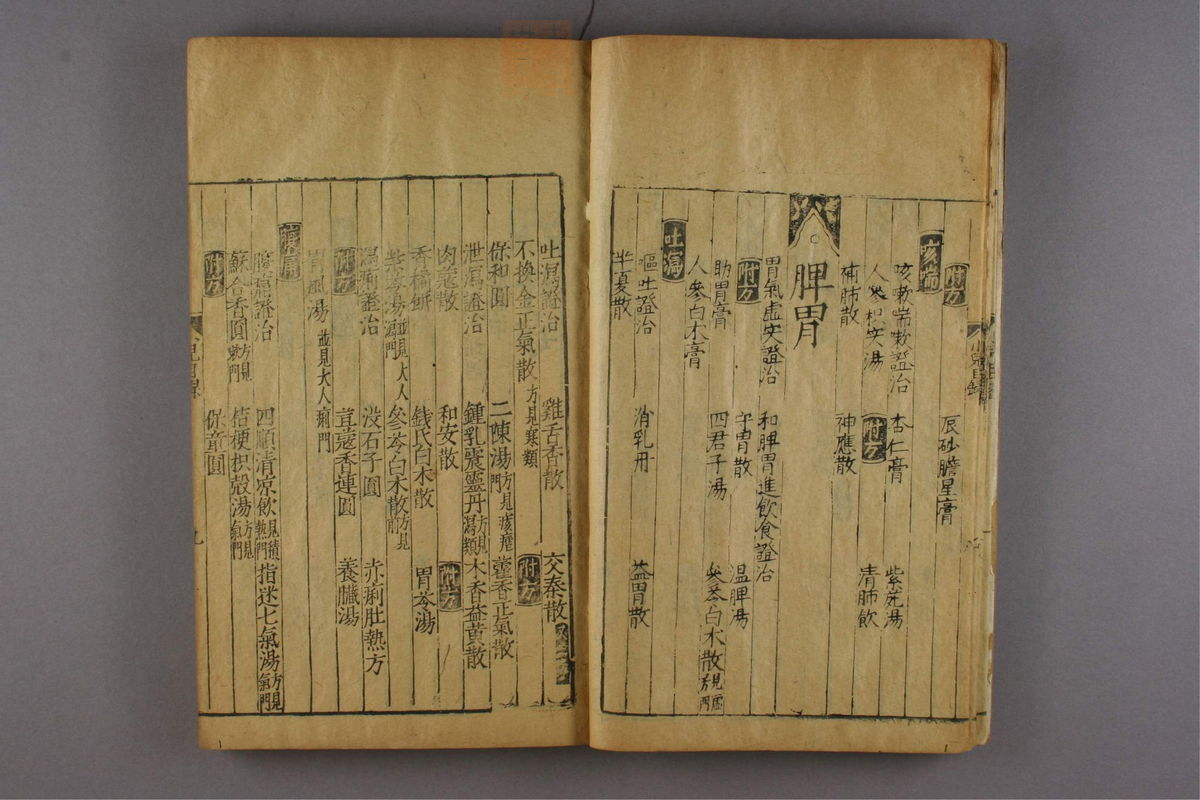 附方 辰砂膽星膏
痰喘
咳嗽喘嗽證治 杏仁膏 紫菀湯
人參 湯 附方 清肺飲
補肺散 神應散
脾胃
胃氣虛实證治 和脾胃進飲食證治
附方 守胃散 温脾湯
助胃膏 四君子湯 參苓白术散方見虛門
人參白术膏
吐瀉
嘔吐證治 消乳丹 益胃散
半夏散
吐瀉證治 雞舌香散 交泰散
不換金正氣散方見寒類 附方
保和圓 二陳湯 藿香正氣散
泄瀉證治 鍾乳震靈丹方見瀉類 木香益黃散
肉蔻散 和安散 附方
香橘餅 錢氏白术散 胃苓湯
柴苓湯並見大人瀉門 參苓白术散方見前
瀉痢證治 没石子圓 赤痢肚熱方
附方 荳蔻香連圓 養臟湯
胃風湯並見大人痢門
證治 四順清凉飲見積熱門 指迷七氣湯方見氣門
蘇合香圓方見 門 桔梗枳殼湯方見氣門
附方 保童圓